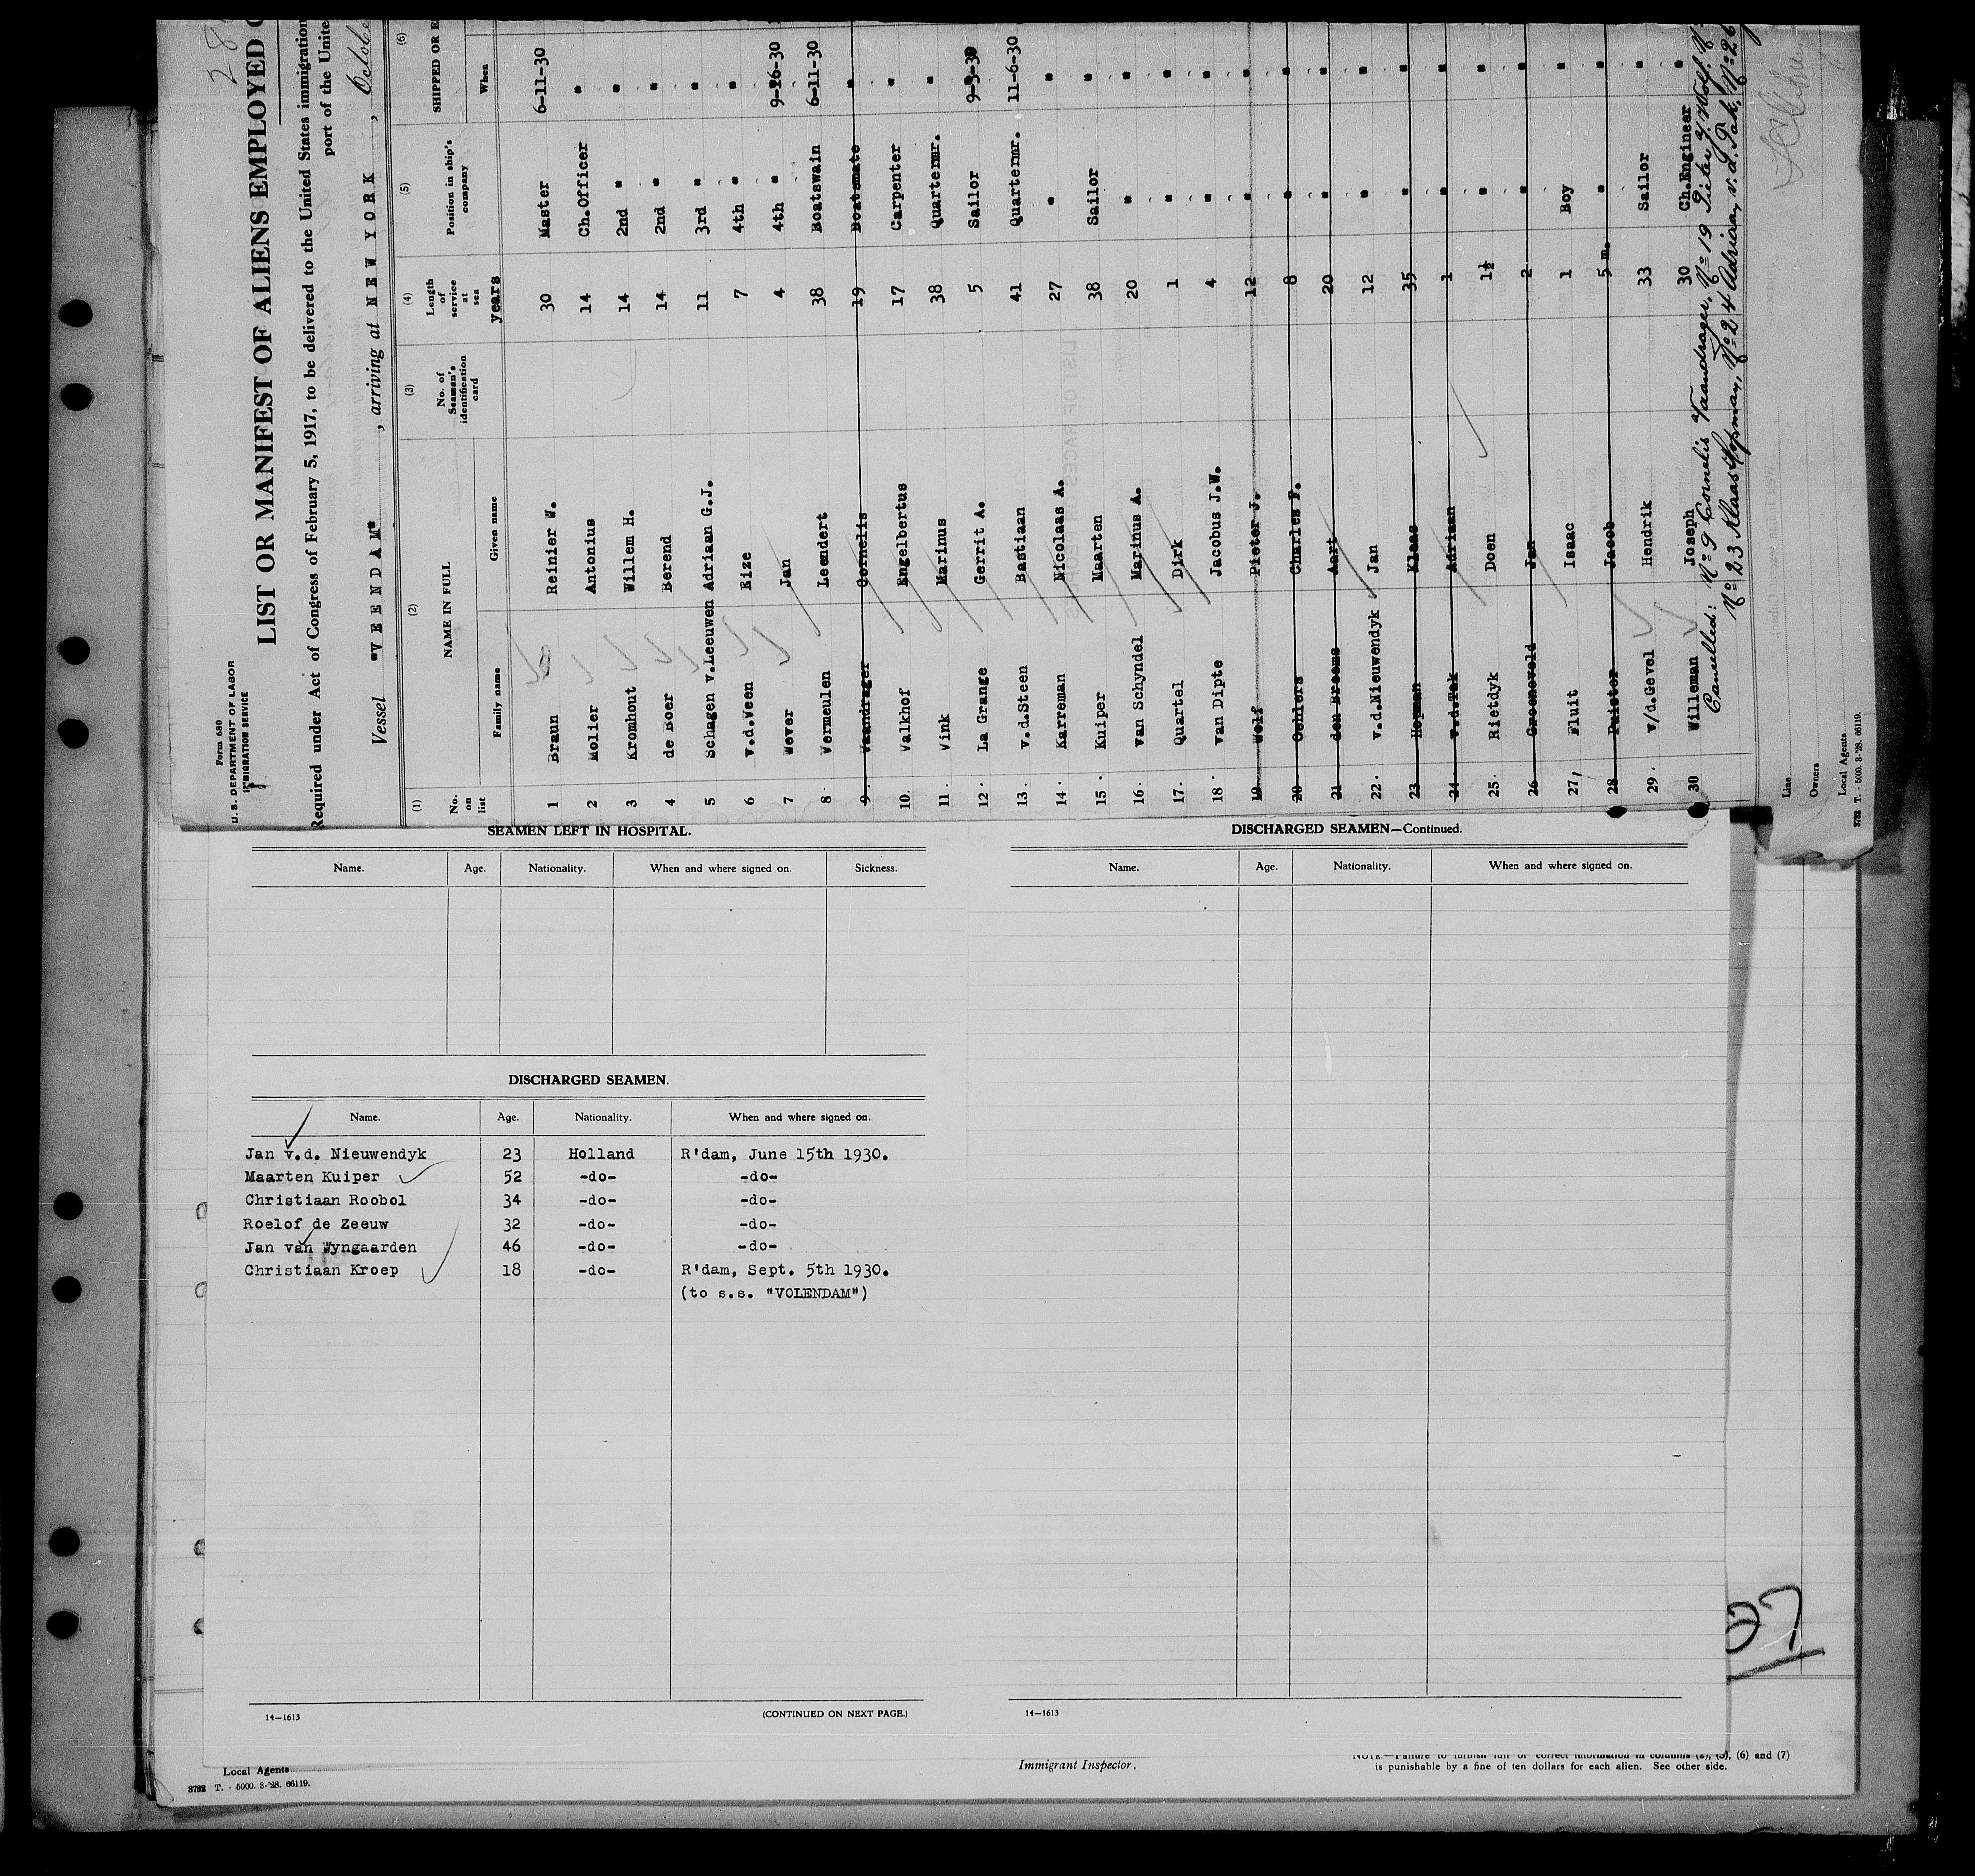 28
Form 680
U. S. DEPARTMENT OF LABOR
IMMIGRATION SERVICE
LIST OR MANIFEST OF ALIENS EMPLOYED
Required under Act of Congress of February 5, 1917, to be delivered to the United States immigration
port of the Unite
Vessel "VEENDAM", arriving at NEW YORK, Octobe
(1) (2) (3) (4) (5) (6)
No. on list NAME IN FULL No. of Seaman's identification card Length of service at sea Position in ship's company SHIPPED OR E
Family name Given name years When
1 Braun Reinier W. 30 Master 6-11-30
2 Molier Antonius 14 Ch.Officer "
3 Kromhout Willem H. 14 2nd " "
4 de Boer Berend 14 2nd " "
5 Schagen v.Leeuwen Adriaan G.J. 11 3rd " "
6 v.d.Veen Eize 7 4th " "
7 Wever Jan 4 4th " 9-26-30
8. Vermeulen Leendert 38 Boatswain 6-11-30
9. Vaandrager Cornelis 19 Boatsmate "
10. Valkhof Engelbertus 17 Carpenter "
11. Vink Marinus 38 Quartermr. "
12. La Grange Gerrit A. 5 Sailor 9-3-30
13. v.d.Steen Bastiaan 41 Quartermr. 11-6-30
14. Karreman Nicolaas A. 27 " "
15. Kuiper Maarten 38 Sailor "
16. van Schyndel Marinus A. 20 " "
17. Quartel Dirk 1 " "
18. van Dipte Jacobus J.W. 4 " "
19. Wolf Pieter J. 12 " "
20. Oehlers Charles F. 8 " "
21 den Breems Aart 20 " "
22. v.d.Nieuwendyk Jan 12 " "
23 Hopman Klaas 35 " "
24 v.d.Tak Adriaan 1 " "
25. Rietdyk Doen 1½ " "
26 Groeneveld Jan 2 " "
27 Fluit Isaac 1 Boy "
28 Puister Jacob 5 m. " "
29. v/d.Gevel Hendrik 33 Sailor "
30 Willeman Joseph 30 Ch.Engineer "
Cancelled: No 9 Cornelis Vaandrager, No 19 Pieter J. Wolf.
No 23 Klaas Hopman, No 24 Adriaan v.d. Tak, No 26
Line
Owners
Local Agents
3782 T. - 5000. 3-'28. 66119.
SEAMEN LEFT IN HOSPITAL.
Name. Age. Nationality. When and where signed on. Sickness.
DISCHARGED SEAMEN.
Name. Age. Nationality. When and where signed on.
Jan v.d. Nieuwendyk 23 Holland R'dam, June 15th 1930.
Maarten Kuiper 52 -do- -do-
Christiaan Roobol 34 -do- -do-
Roelof de Zeeuw 32 -do- -do-
Jan van Wyngaarden 46 -do- -do-
Christiaan Kroep 18 -do- R'dam, Sept. 5th 1930.
(to s.s. "VOLENDAM")
14—1613 (CONTINUED ON NEXT PAGE.)
DISCHARGED SEAMEN—Continued.
Name. Age. Nationality. When and where signed on.
14—1613
Local Agents
3782 T. - 5000. 3-'28. 66119.
Immigrant Inspector.
NOTE.—Failure to furnish full or correct information in columns (2), (5), (6) and (7)
is punishable by a fine of ten dollars for each alien. See other side.